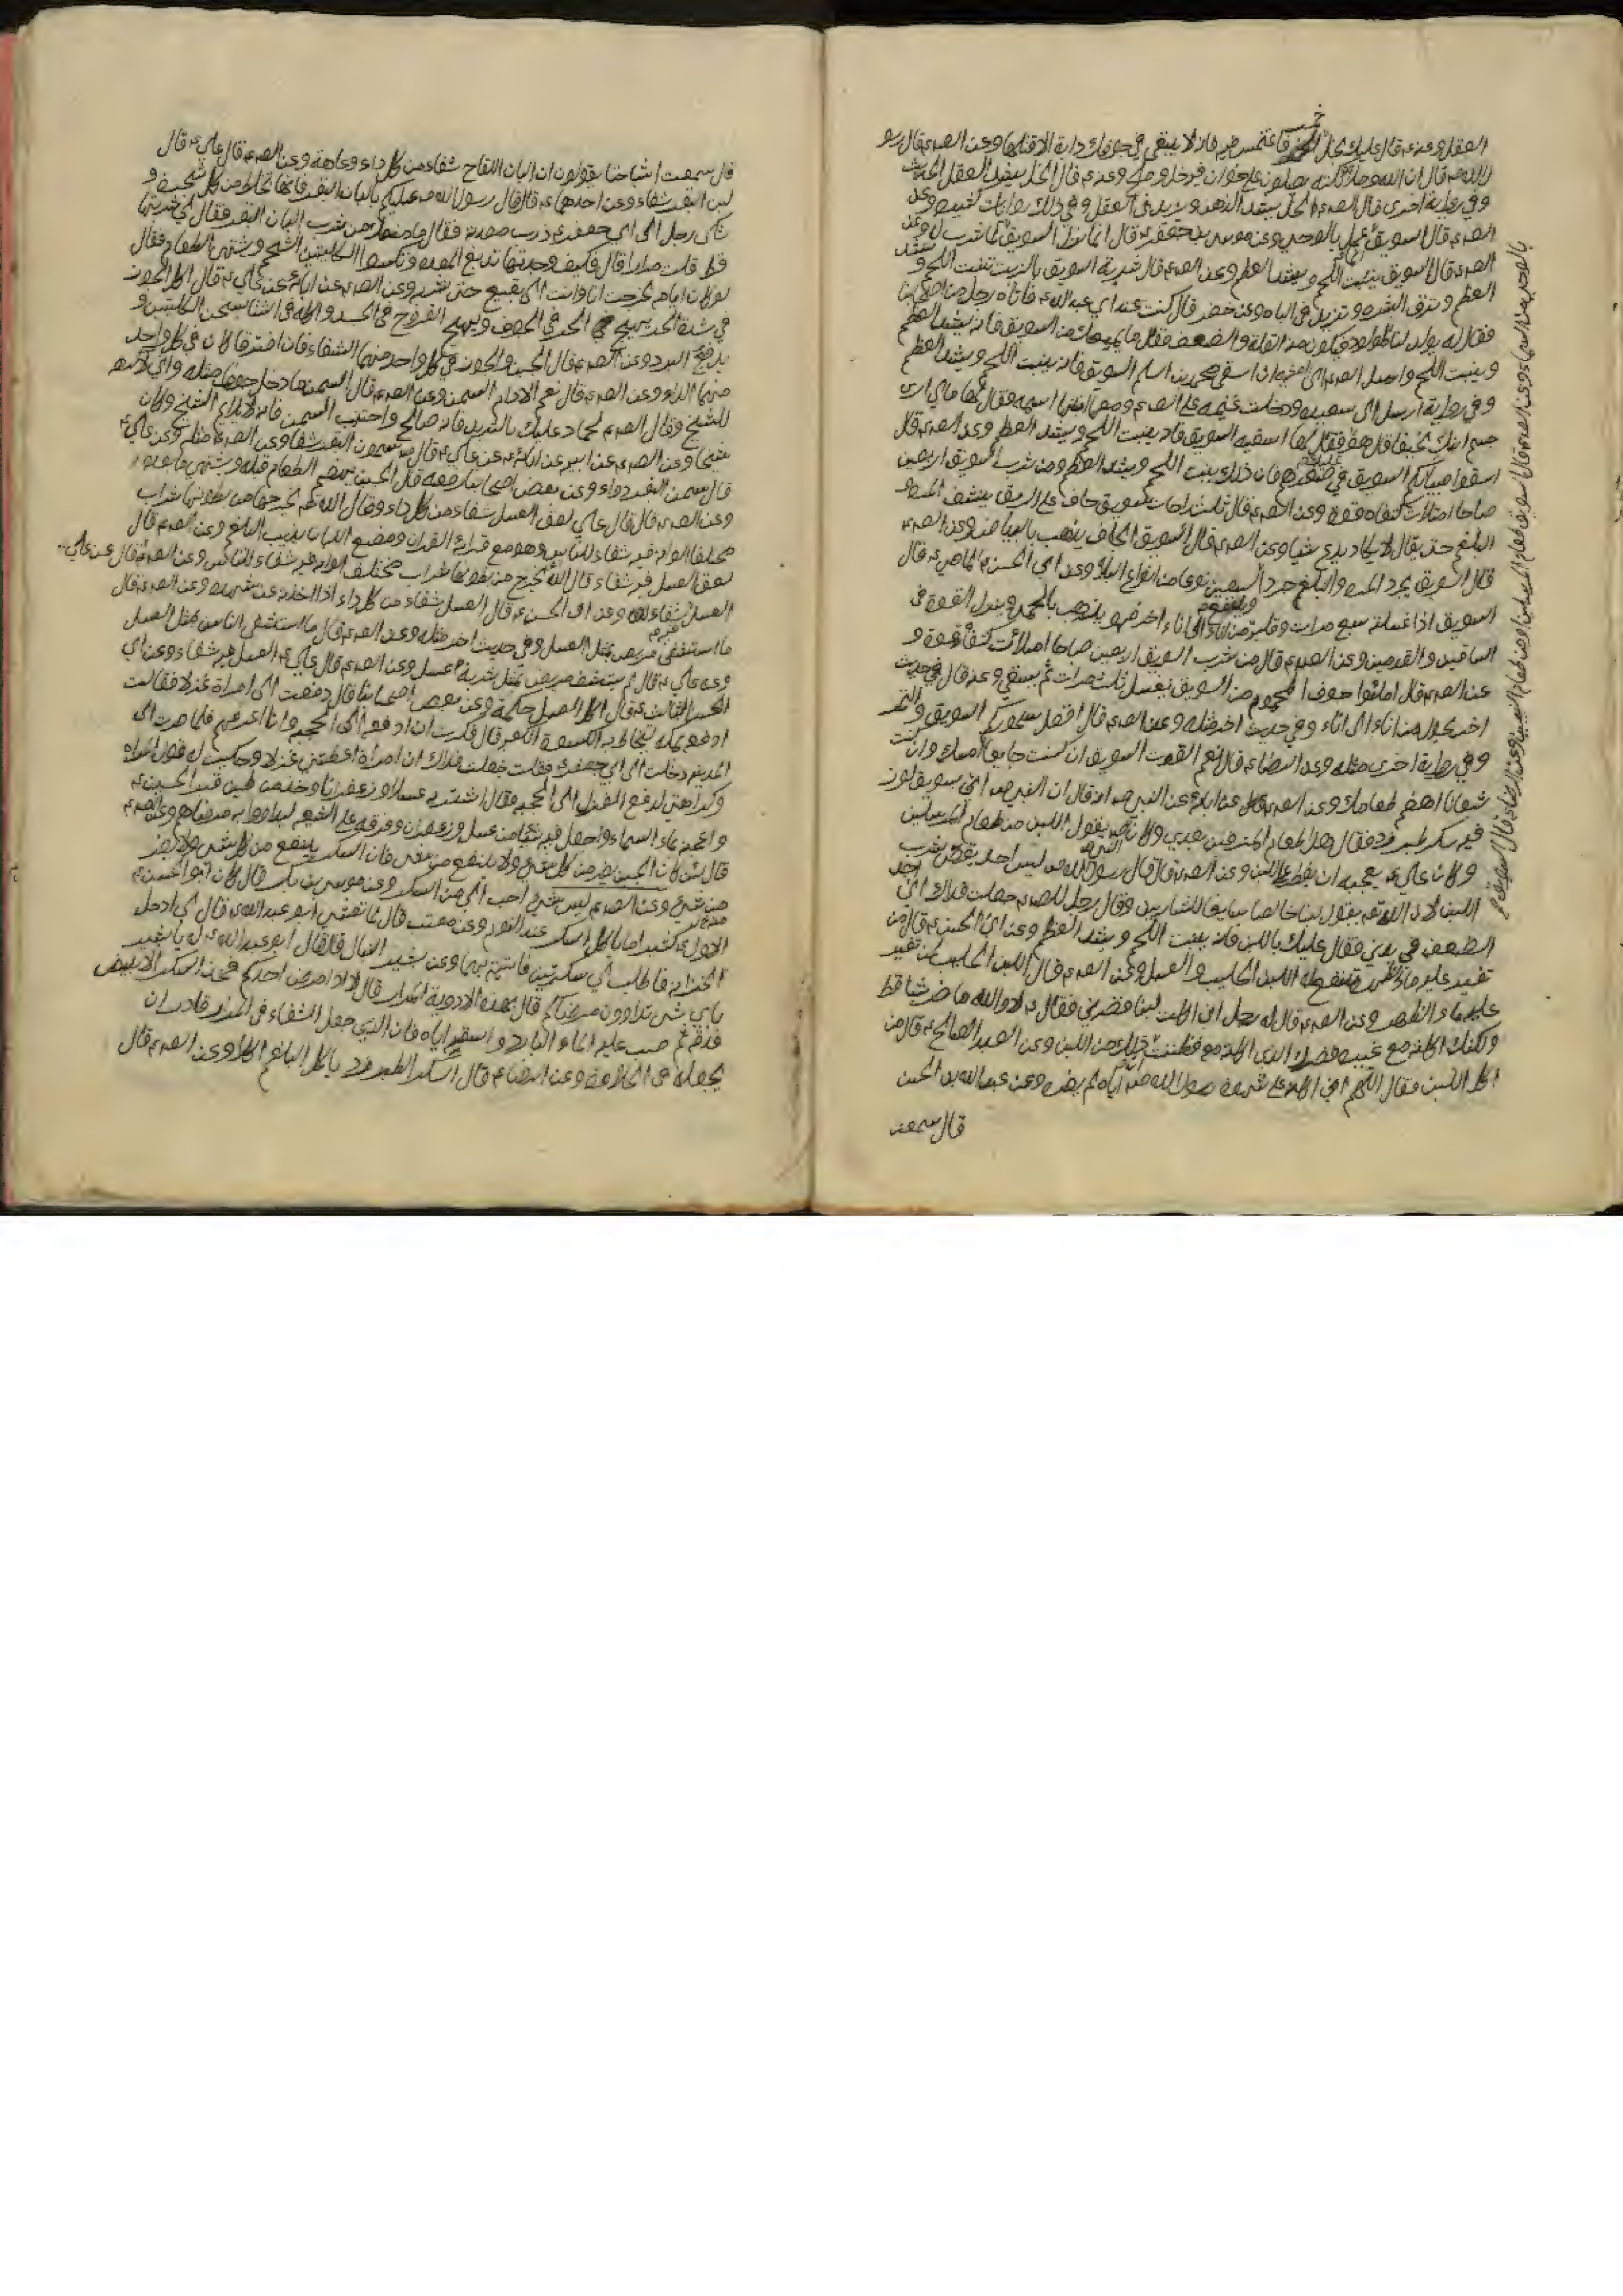 العقل وعنه ع قال عليك بخل الخمر فاغتمس فيه فانه لا يبقى في جوفك دابة الا قتلها وعن الصم ع قال رسو
ل الله ص قال ان الله وملائكته يصلون على خوان فيه خل وملح وعنه ع قال الخل يشد العقل
وفي رواية اخرى قال الصم ع الخل يشد الذهن ويزيد في العقل وفي ذلك روايات كثيره وعن
الصم ع قال السويق عمل بالوحي وعن موسى بن جعفر ع قال انما نزل السويق
الصم ع قال السويق ينبت اللحم ويشد العظم وعن الصم ع قال شربة السويق بالزيت تنبت اللحم و
العظم وترق البشره وتزيد في الباه وعن خضر قال كنت عند ابي عبد الله ع فاتاه رجل من اصحابنا
فقال له يولد لنا المولود فيكون منه القلة والضعف فقال ما يمنعك من السويق فانه يشد العظم
وينبت اللحم
وفي رواية ارسل الى سعيده ودخلت
جسم ابنك نحيفا قال اسقيه السويق فانه ينبت اللحم ويشد العظم وعن الصم ع قال
اسقوا صبيانكم السويق في صغرهم فان ذلك ينبت اللحم ويشد العظم ومن شرب السويق اربعين
صباحا امتلأت كتفاه قوة وعن الصم ع قال ثلث راحات سويق جاف على الريق ينشف المره و
البلغم حتى يقال لا يكاد يدع شيئا وعن الصم ع قال السويق الجاف يذهب بالبياض وعن الصم ع
قال السويق يجرد المره والبلغم جردا السبعين نوعا من انواع البلاء وعن ابي الحسن الماضي ع قال
السويق اذا غسلته سبع مرات وقلبته من اناء الى اناء اخر فهو يذهب بالحمى وينزل القوة في
الساقين والقدمين وعن الصم ع قال من شرب السويق اربعين صباحا امتلأت كتفاه قوة و
عن الصم ع قال املئوا جوف المحموم من السويق يغسل ثلث مرات ثم يسقى وعنه قال في حديث
اخر يحول من اناء الى اناء وفي حديث اخر مثله وعن الصم ع قال افضل سحوركم السويق والتمر
وفي رواية اخرى مثله وعن الرضا ع قال نعم القوت السويق ان كنت جايعا امسك وان كنت
شبعانا اهضم طعامك وعن الصم ع عن ابائه عن النبي ص انه قال ان النبي ص اتى بسويق لوز
فيه سكر طبرزد فقال هذا طعام المترفين بعدي وكان ص يقول اللبن من طعام المرسلين
وكان علي ع يعجبه ان يفطر على اللبن وعن الصم ع قال قال رسول الله ص ليس احد يغص بشرب
اللبن لان الله تعم يقول لبنا خالصا سايغا للشاربين وقال رجل للصم ع جعلت فداك اني اجد
الضعف في بدني فقال عليك باللبن فانه ينبت اللحم ويشد العظم وعن ابي الحسن ع قال من
تغير عليه ماء الظهر ينفع له اللبن الحليب والعسل وعن الصم ع قال اللبن الحليب لمن تغير
عليه ماء الظهر وعن الصم ع قال له رجل اني اكلت لبنا فضرني فقال ع لا والله ما ضر شيئا قط
ولكنك اكلته مع غيره فضرك الذي اكلته معه فظننت ذلك من اللبن وعن العبد الصالح ع قال من
اكل اللبن فقال اللهم اني اكله على شهوة رسول الله ص اياه لم يضره وعن عبد الله بن الحسن
قال سمعت
قال سمعت اشياخنا يقولون ان البان اللقاح شفاء من كل داء وعاهة وعن الصم ع قال علي ع قال
لبن البقر شفاء وعن احدهما ع قال قال رسول الله ص عليكم بالبان البقر فانها تخلط من كل شجر و
شكى رجل الى ابي جعفر ع ذرب معدته فقال ما يمنعك من شرب البان البقر فقال لي شربتها
قط قلت مرارا قال فكيف وجدتها تدبغ المعده وتكسو الكليتين الشحم وتشهي الطعام فقال
لو كان ايامه لخرجت انا وانت الى ينبع حتى نشربه وعن الصم ع عن ابائه عن علي ع قال اكل الجوز
في شدة الحر يهيج الحر في الجوف ويهيج القروح في الجسد واكله في الشتاء يسخن الكليتين و
يدفع البرد وعن الصم ع قال الجبن والجوز في كل واحد منهما الشفاء فان افترقا كان في كل واحد
منهما الداء وعن الصم ع قال نعم الادام السمن وعن الصم ع قال السمن ما دخل جوفا مثله واني لاكرهه
للشيخ وقال الصم ع لحماد عليك بالثريد فانه صالح واجتنب السمن فانه لا يلائم الشيخ وكان
شيخا وعن الصم ع عن ابيه عن ابائه عن علي ع قال سمون البقر شفاء وعن الصم ع مثله وعن علي ع
قال سمن البقر دواء وعن بعض اصحابنا رفعه قال الجبن يهضم الطعام قبله ويشهي ما بعده
وعن الصم ع قال قال علي ع لعق العسل شفاء من كل داء وقال الله تعم يخرج من بطونها شراب
مختلف الوانه فيه شفاء للناس وهو مع قراءة القران ومضغ اللبان يذيب البلغم وعن الصم ع قال
لعق العسل فيه شفاء قال الله يخرج من بطونها شراب مختلف الوانه فيه شفاء للناس وعن الصم ع قال عن علي
العسل شفاء وعن ابي الحسن ع قال العسل شفاء من كل داء اذا اخذته من شهده وعن الصم ع قال
ما استشفى مريض بمثل العسل وفي حديث اخر مثله وعن الصم ع قال ما استشفى الناس بمثل العسل
وعن علي ع قال لم يستشف مريض بمثل شربة عسل وعن الصم ع قال علي ع العسل فيه شفاء وعن ابي
الحسن الثالث ع قال اكل العسل حكمة وعن بعض اصحابنا قال دفعت الي امراة غزلا فقالت
ادفعه بمكه ليخاط به كسوة الكعبه قال فكرهت ان ادفعه الى الحجبه وانا اعرفهم فلما صرت الى
المدينه دخلت الى ابي جعفر ع فقلت جعلت فداك ان امراة اعطتني غزلا وحكيت له قول المراه
وكراهتي لدفع الغزل الى الحجبه فقال اشتر به عسلا وزعفرانا وخذ من طين قبر الحسين ع
واعجنه بماء السماء واجعل فيه شيئا من عسل وزعفران وفرقه على الشيعه ليداووا به مرضاهم وعن الصم ع
قال لئن كان الجبن يضر من كل شيء ولا ينفع من شيء فان السكر ينفع من كل شيء ولا يضر
من شيء وعن الصم ع ليس شيء احب الي من السكر وعن موسى بن بكر قال كان ابو الحسن ع
الاول كثيرا ما ياكل السكر عند النوم وعن معتب قال لما تعشى ابو عبد الله ع قال لي ادخل
الخزانه فاطلب لي سكرتين فاتيته بهما وعن بشير النبال قال قال ابو عبد الله ع لي يا بشير
باي شيء تداوون مرضاكم قال بهذه الادوية المرار قال لا اذا مرض احدكم فخذ السكر الابيض
فدقه ثم صب عليه الماء البارد واسقه اياه فان الذي جعل الشفاء في المرار قادر ان
يجعله في الحلاوة وعن الرضا ع قال السكر الطبرزد ياكل البلغم اكلا وعن الصم ع قال